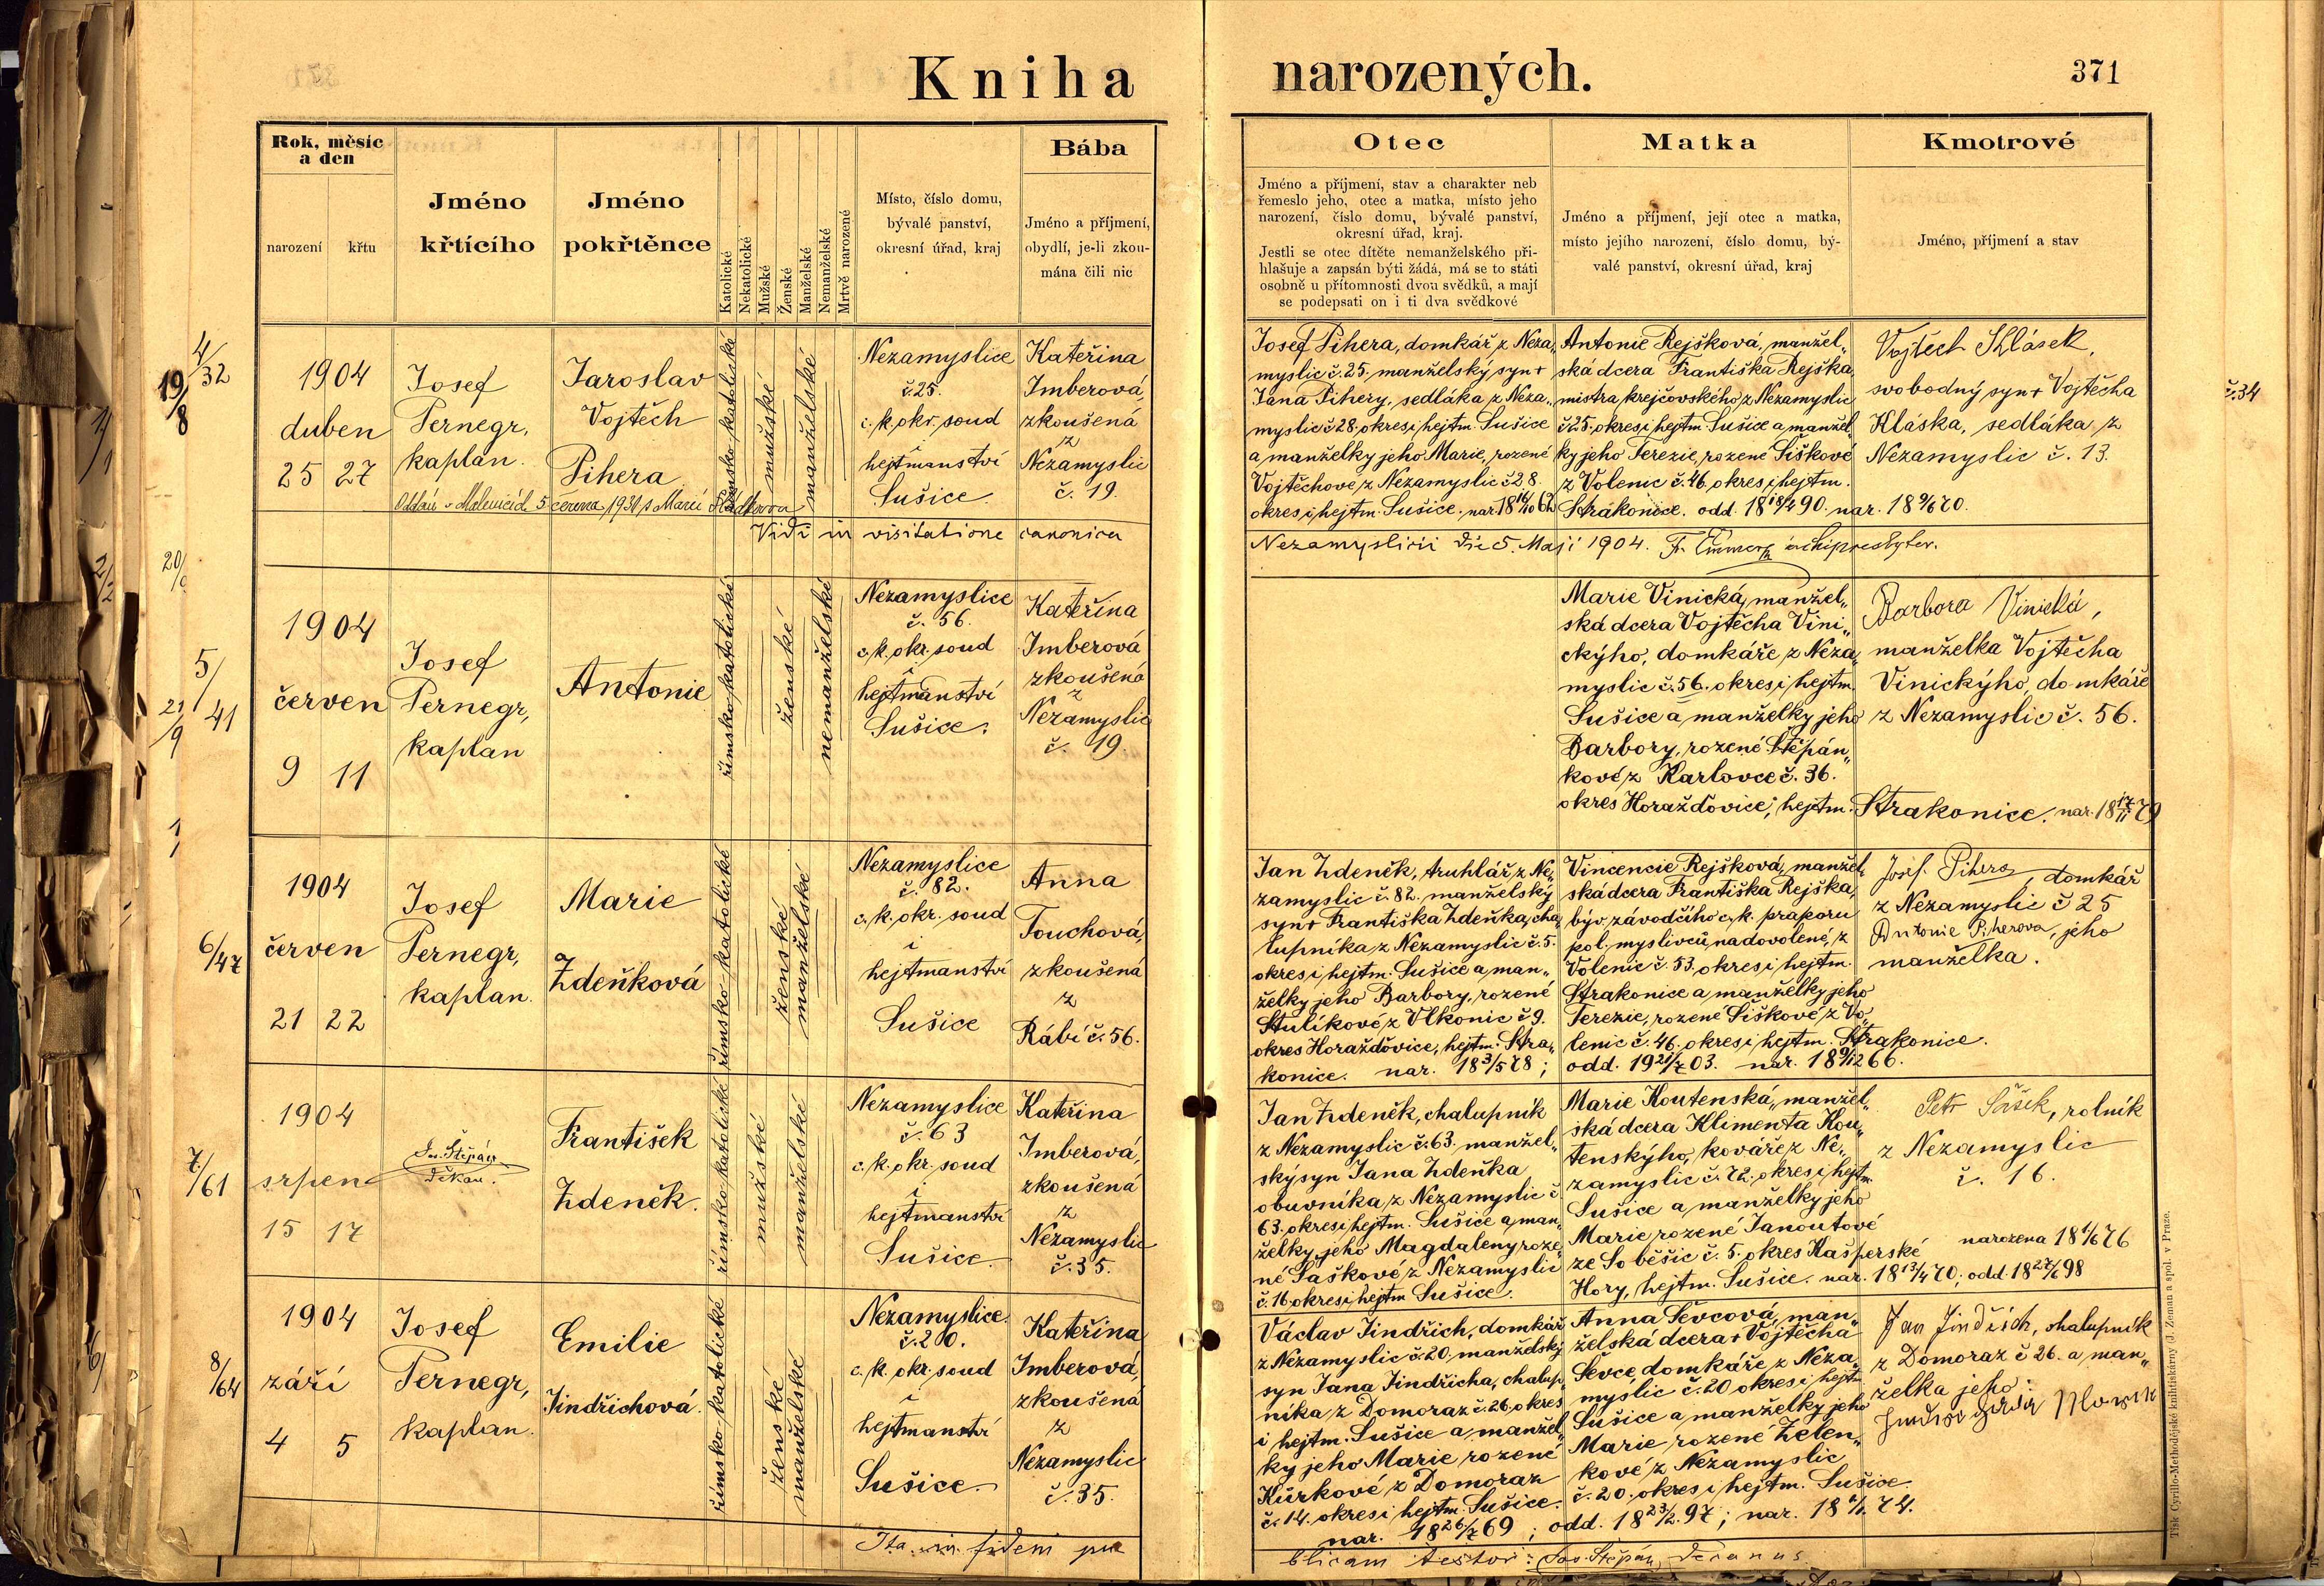 Kniha narozených.
371
Rok, měsíc
a den
narození
křtu
Jméno
křtícího
Jméno
pokřtěnce
Katolické
Nekatolické
Mužské
Ženské
Manželské
Nemanželské
Mrtvě narozené
Místo, číslo domu,
bývalé panství,
okresní úřad, kraj
Bába
Jméno a příjmení,
obydlí, je-li zkou-
mána čili nic
Otec
Jméno a příjmení, stav a charakter neb
řemeslo jeho, otec a matka, místo jeho
narození, číslo domu, bývalé panství,
okresní úřad, kraj.
Jestli se otec dítěte nemanželského při-
hlašuje a zapsán býti žádá, má se to státi
osobně u přítomnosti dvou svědků, a mají
se podepsati on i ti dva svědkové
Matka
Jméno a příjmení, její otec a matka,
místo jejího narození, číslo domu, bý-
valé panství, okresní úřad, kraj
Kmotrové
Jméno, příjmení a stav
4/32
19/8
1904
duben
25 27
Josef
Pernegr,
kaplan.
Jaroslav
Vojtěch
Pihera
římsko-katolické
mužské
manželské
Nezamyslice
č. 25.
c. k. okr. soud
i
hejtmanství
Sušice.
Kateřina
Imberová,
zkoušená
z
Nezamyslic
č. 19.
Josef Pihera, domkář z Neza„
myslic č. 25. manželský syn †
Jana Pihery, sedláka z Neza„
myslic č 28. okres i hejtm. Sušice
a manželky jeho Marie, rozené
Vojtěchove z Nezamyslic č 28.
okres i hejtm. Sušice. nar. 18 14/10 62
Antonie Rejšková, manžel„
ská dcera Františka Rejška,
mistra krejčovského z Nezamyslic
č 25. okres i hejtm. Sušice a manžel„
ky jeho Terezie, rozené Šiškové
z Volenic č. 46. okres i hejtm.
Strakonice. odd. 18 18/4 90. nar. 18 9/6 70.
Vojtěch Klásek,
svobodný syn † Vojtěcha
Kláska, sedláka z
Nezamyslic č. 13.
č. 34
Oddán v Malenicích 5. června 1931 s Marií
Vidi in visitatione canonica
Nezamyslicii die 5. Maji 1904. archipresbyter.
5/41
21/9
1904
červen
9 11
Josef
Pernegr,
kaplan
Antonie
římsko-katolické
ženské
nemanželské
Nezamyslice
č. 56.
c. k. okr. soud
i
hejtmanství
Sušice.
Kateřina
Imberová
zkoušená
z
Nezamyslic
č. 19.
Marie Vinická, manžel„
ská dcera Vojtěcha Vini„
ckýho, domkáře z Neza„
myslic č. 56. okres i hejtm.
Sušice a manželky jeho
Barbory, rozené Štěpán„
kové z Karlovce č. 36.
okres Horažďovice, hejtm. Strakonice. nar. 18 17/11 79
Barbora Vinická,
manželka Vojtěcha
Vinickýho, domkáře
z Nezamyslic č. 56.
6/47
1904
červen
21 22
Josef
Pernegr,
kaplan.
Marie
Zdeňková
římsko-katolické
ženské
manželské
Nezamyslice
č. 82.
c. k. okr. soud
i
hejtmanství
Sušice
Anna
Touchová,
zkoušená
z
Rábí č. 56.
Jan Zdeněk, truhlář z Ne„
zamyslic č. 82. manželský
syn † Františka Zdeňka, cha„
lupníka z Nezamyslic č. 5.
okres i hejtm. Sušice a man„
želky jeho Barbory, rozené
Stulíkové z Vlkonic č 9.
okres Horažďovice, hejtm. Stra„
konice. nar. 18 3/5 78;
Vincencie Rejšková, manžel„
ská dcera Františka Rejška,
býv. závodčího c. k. praporu
pol. myslivců na dovolené, z
Volenic č. 53. okres i hejtm.
Strakonice a manželky jeho
Terezie, rozené Šiškové z Vo„
lenic č. 46. okres i hejtm. Strakonice.
odd. 19 21/7 03. nar. 18 9/12 66.
Josef Pihera, domkář
z Nezamyslic č 25
Antonie Piherova, jeho
manželka.
7/61
1904
srpen
15 17
Jos. Štěpán
děkan.
František
Zdeněk.
římsko-katolické
mužské
manželské
Nezamyslice
č. 63
c. k. okr. soud
i
hejtmanství
Sušice.
Kateřina
Imberová,
zkoušená
z
Nezamyslic
č. 35.
Jan Zdeněk, chalupník
z Nezamyslic č. 63. manžel„
ský syn Jana Zdeňka
obuvníka z Nezamyslic č.
63. okres i hejtm. Sušice a man„
želky jeho Magdaleny roze„
né Šaškové z Nezamyslic
č. 16 okres i hejtm Sušice.
Marie Koutenská, manžel„
ská dcera Klimenta Kou„
tenskýho, kováře z Ne„
zamyslic č. 72. okres i hejtm.
Sušice a manželky jeho
Marie rozené Janoutové
ze Soběšic č. 5. okres Kašperské
Hory, hejtm. Sušice. nar. 18 13/4 70; odd. 18 27/6 98
Petr Šašek, rolník
z Nezamyslic
č. 16.
narozena 18 1/6 76
8/64
1904
září
4 5
Josef
Pernegr,
kaplan.
Emilie
Jindřichová.
římsko-katolické
ženské
manželské
Nezamyslice.
č. 20.
c. k. okr. soud
i
hejtmanství
Sušice.
Kateřina
Imberová,
zkoušená
z
Nezamyslic
č. 35.
Václav Jindřich, domkář
z Nezamyslic č. 20. manželský
syn Jana Jindřicha, chalup„
níka z Domoraz č. 26. okres
i hejtm. Sušice a manžel„
ky jeho Marie rozené
Kůrkové z Domoraz
č. 14. okres i hejtm. Sušice.
nar. 18 26/7 69;
Anna Ševcová, man„
želská dcera † Vojtěcha
Ševce, domkáře z Neza„
myslic č. 20 okres i hejtm.
Sušice a manželky jeho
Marie rozené Zelen„
kové z Nezamyslic
č. 20. okres i hejtm. Sušice.
odd. 18 23/2 97; nar. 18 74.
Jan Jindřich, chalupník
z Domoraz č 26. a man„
želka jeho:
Ita in fidem pu
blicam testor: Jos. Štěpán, Decanus.
Tisk Cyrillo-Methodějské knihtiskárny (J. Zeman a spol. v Praze.